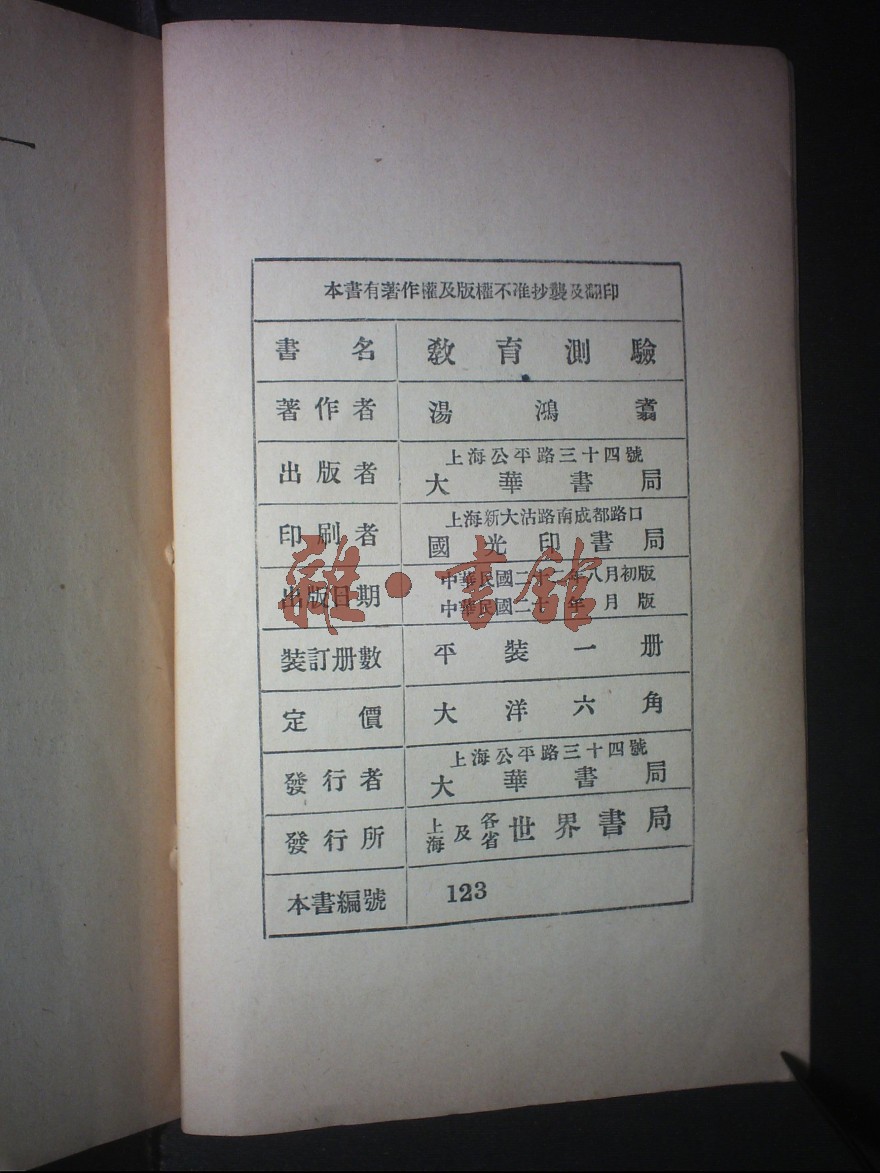 本書有著作權及版權不准抄襲及翻印
書名 教育測驗
著作者 湯鴻翥
出版者 上海公平路三十四號
大華書局
印刷者 上海新大沽路南成都路口
國光印書局
出版日期 中華民國二十二年八月初版
中華民國二十 年 月 版
裝訂册數 平裝一册
定價 大洋六角
發行者 上海公平路三十四號
大華書局
發行所 上海及各省世界書局
本書編號 123
雜·書館